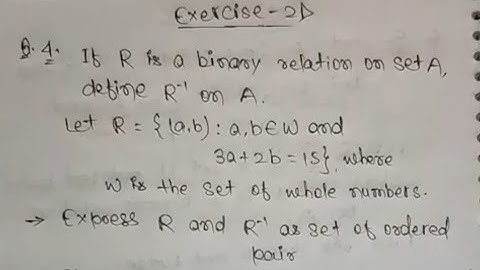 Exercise - 2D
Q. 4. If R is a binary relation on set A,
define R⁻¹ on A.
Let R = {(a,b) : a, b ∈ W and
3a + 2b = 15}, where
W is the set of whole numbers.
→ Express R and R⁻¹ as set of ordered
pair